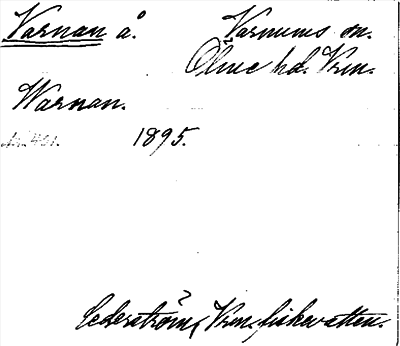 Varnan å. Varnums sn.
Ölme hd. Vrm.
Warnan.
1895.
Cederström, Vrm. fiskevatten.